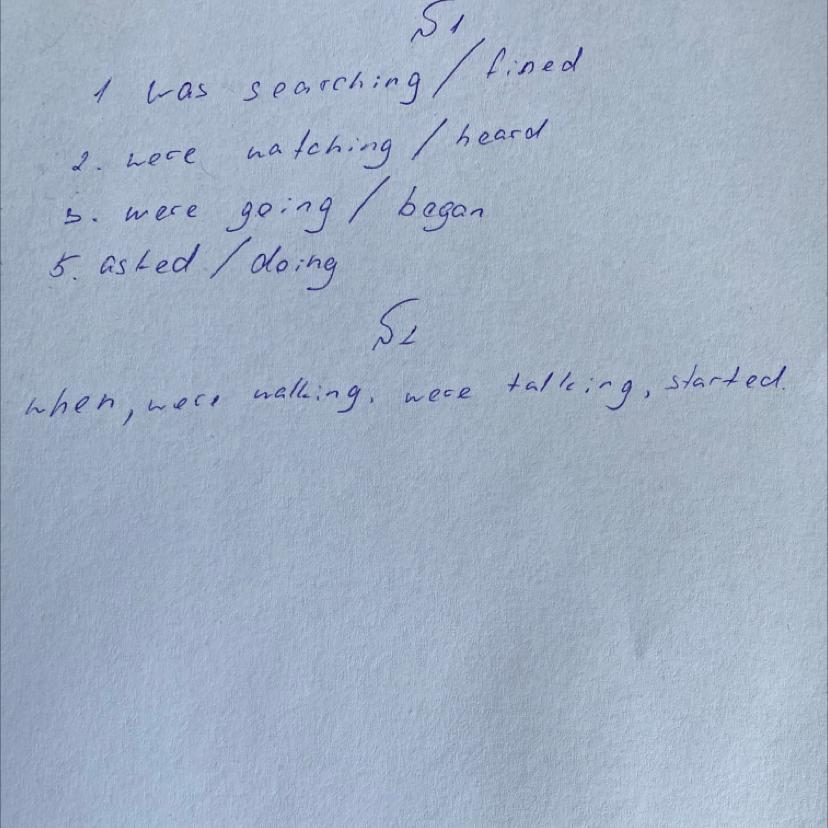 №1
1 was searching / fined
2. were watching / heard
3. were going / began
5. asked / doing
№2
when, were walking, were talking, started.